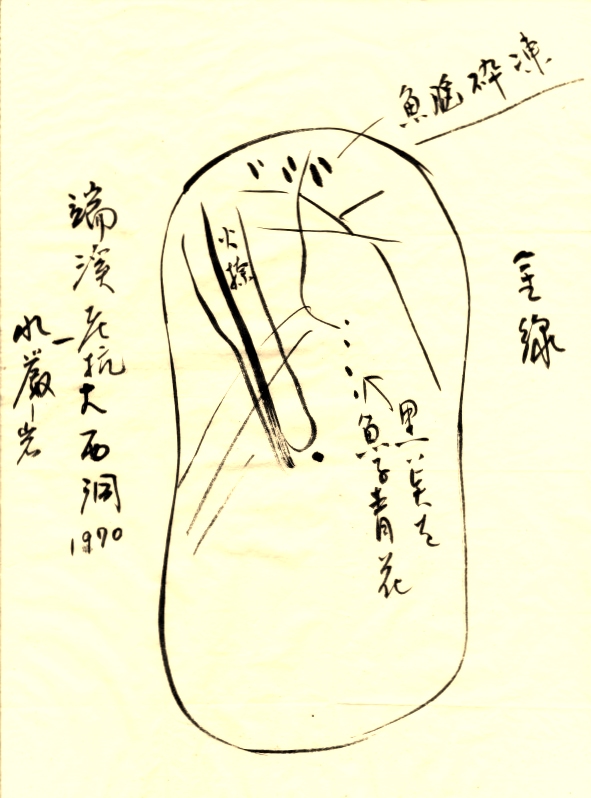 魚腦碎凍
金線
火捺
黑
小魚子青花
端溪老坑大西洞
1970
水巖 岩